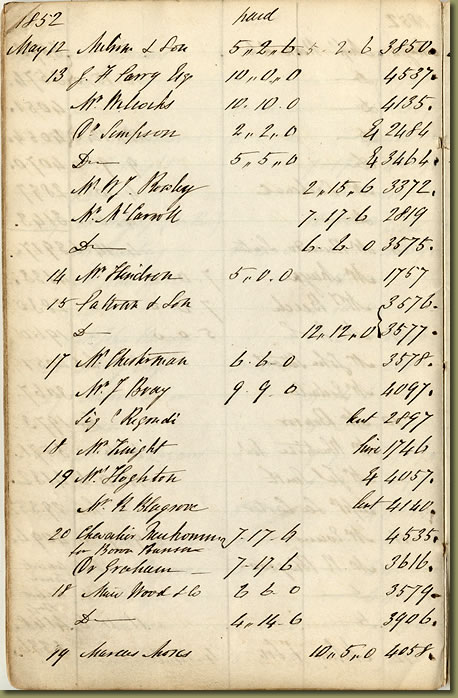 1852 paid
May 12 & Son 5,,2,,6 5. 2. 6 3850.
13 J. H. Parry Esq 10,,0,,0 4537.
Mr Wilcocks 10. 10. 0 4135.
Dr Simpson 2,,2,,0 & 2484
Do 5,,5,,0 & 3464.
Mr R J. Boxley 2,,15,,6 3372.
Mr McCarroll 7-17-6 2819
Do 6. 6. 0 3575.
14 Mr Hindson 5,,0.0 1757
15 & Son 3576.
Do 12,,12,,0 3577.
17 Mr Chesterman 6. 6. 0 3578.
Mr J Bray 9. 9. 0 4097.
Sigr Regondi lent 2897
18 Mr Knight hire 1746
19 Mr Hoghton & 4057.
Mr R Blagrove lent 4140.
20 Chevalier 7-17-6 4535.
for Baron
Dr Graham 7-17 6 3616.
18 Muir Wood & Co 6 6. 0 3579.
Do 4,,14.6 3906.
19 Marcus Moses 10,,5,,0 4058.